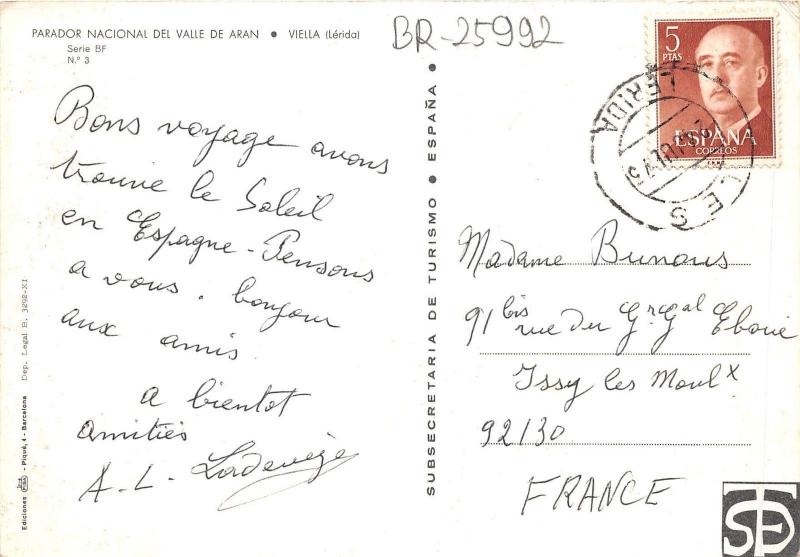 PARADOR NACIONAL DEL VALLE DE ARAN • VIELLA (Lérida)
Serie BF
N.º 3
BR-25992
Bons voyage avons
trouve le Soleil
en Espagne - Pensons
a vous. bonjour
aux amis.
a bientot
amitiés
A-L- Ladevèze
Dep. Legal B. 3292-XI
Ediciones - Piqué, 4 - Barcelona
SUBSECRETARIA DE TURISMO • ESPAÑA •
5
PTAS
ESPAÑA
CORREOS
LERIDA
LES
Madame Bunous
91 bis rue du Gr Gal Eboué
Issy les Moulx
92130
FRANCE
STE